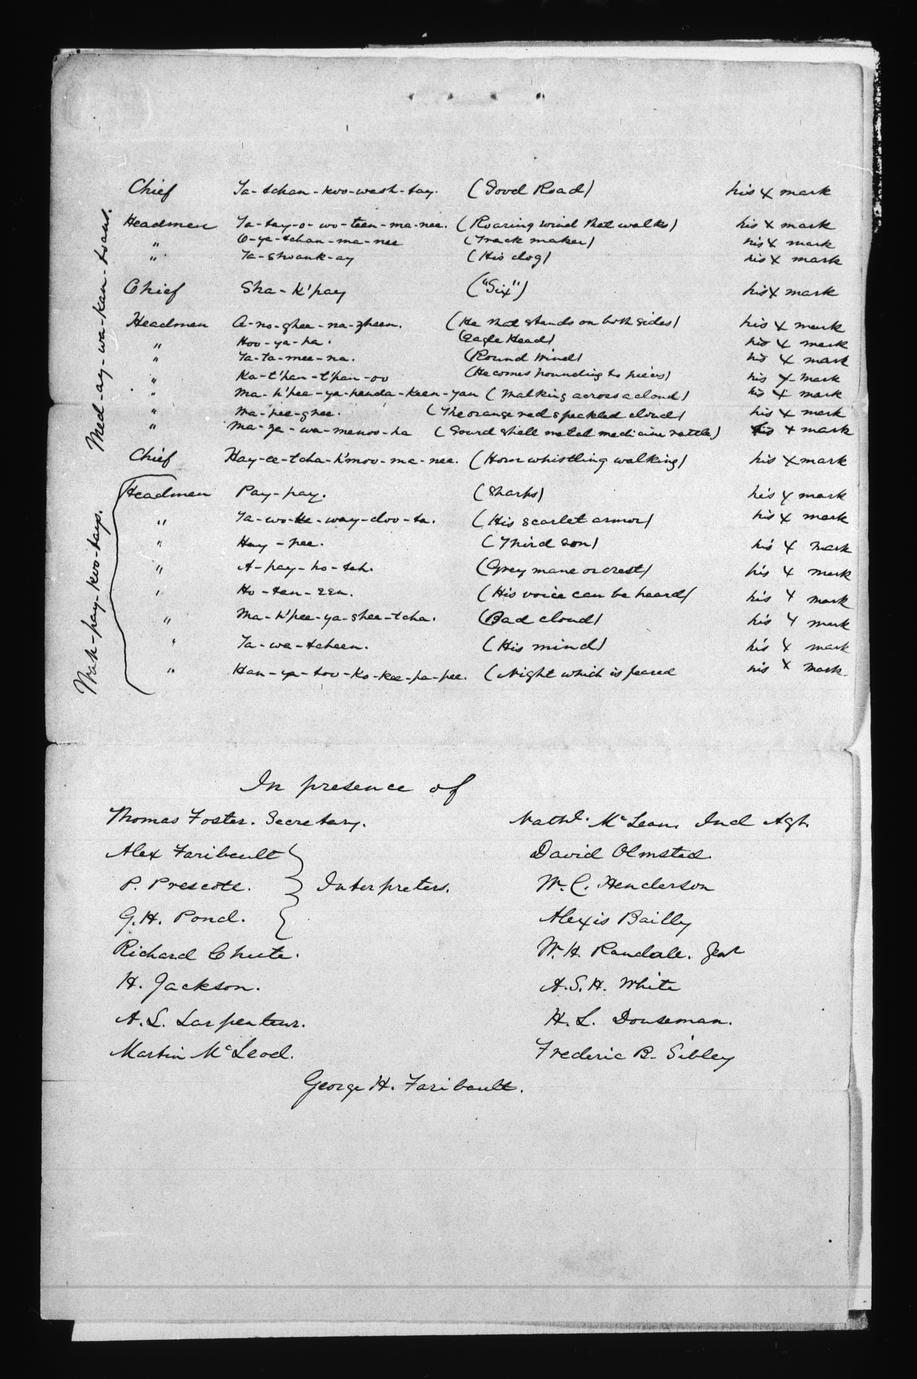 Med-ay-wa-kan-toans.
Chief Ta-tchan-koo-wash-tay. (Good Road) his x mark
Headmen Ta-tay-o-wo-teen-ma-nee. (Roaring wind that walks) his x mark
" O-ya-tchan-ma-nee (Track maker) his x mark
" Ta-shoonk-ay (His dog) his x mark
Chief Sha-k'pay ("Six") his x mark
Headmen A-no-ghee-na-zheen. (He that stands on both sides) his x mark
" Hoo-ya-pa. (Eagle Head) his x mark
" Ta-ta-mee-na. (Round Wind) his x mark
" Ka-t'pan-t'pan-oo (He comes pounding to pieces) his x mark
" Ma-h'pee-ya-henda-keen-yan (Walking across a cloud) his x mark
" Ma-pee-ghee. (The orange red speckled cloud) his x mark
" Ma-za-wa-menoo-ha (Gourd shell metal medicine rattle) his x mark
Chief Hay-ee-tcha-h'moo-ma-nee. (Horn whistling walking) his x mark
Wah-pay-koo-tays.
Headmen Pay-pay. (Sharp) his x mark
" Ta-wo-te-way-doo-ta. (His scarlet armor) his x mark
" Hay-pee. (Third son) his x mark
" A-pay-ho-tah. (Grey mane or crest) his x mark
" Ho-tan-een. (His voice can be heard) his x mark
" Ma-h'pee-ya-shee-tcha. (Bad cloud) his x mark
" Ta-wa-tcheen. (His mind) his x mark
" Han-ya-too-ko-kee-pa-pee. (Night which is feared his x mark.
In presence of
Thomas Foster. Secretary. Nathl. McLean, Ind Agt.
Alex Faribault David Olmsted.
P. Prescott. Interpreters. W. C. Henderson
G. H. Pond. Alexis Bailly
Richard Chute. W. H. Randall. Jent
H. Jackson. A. S. H. White
A. L. Larpenteur. H. L. Dousman.
Martin McLeod. Frederic B. Sibley
George H. Faribault.